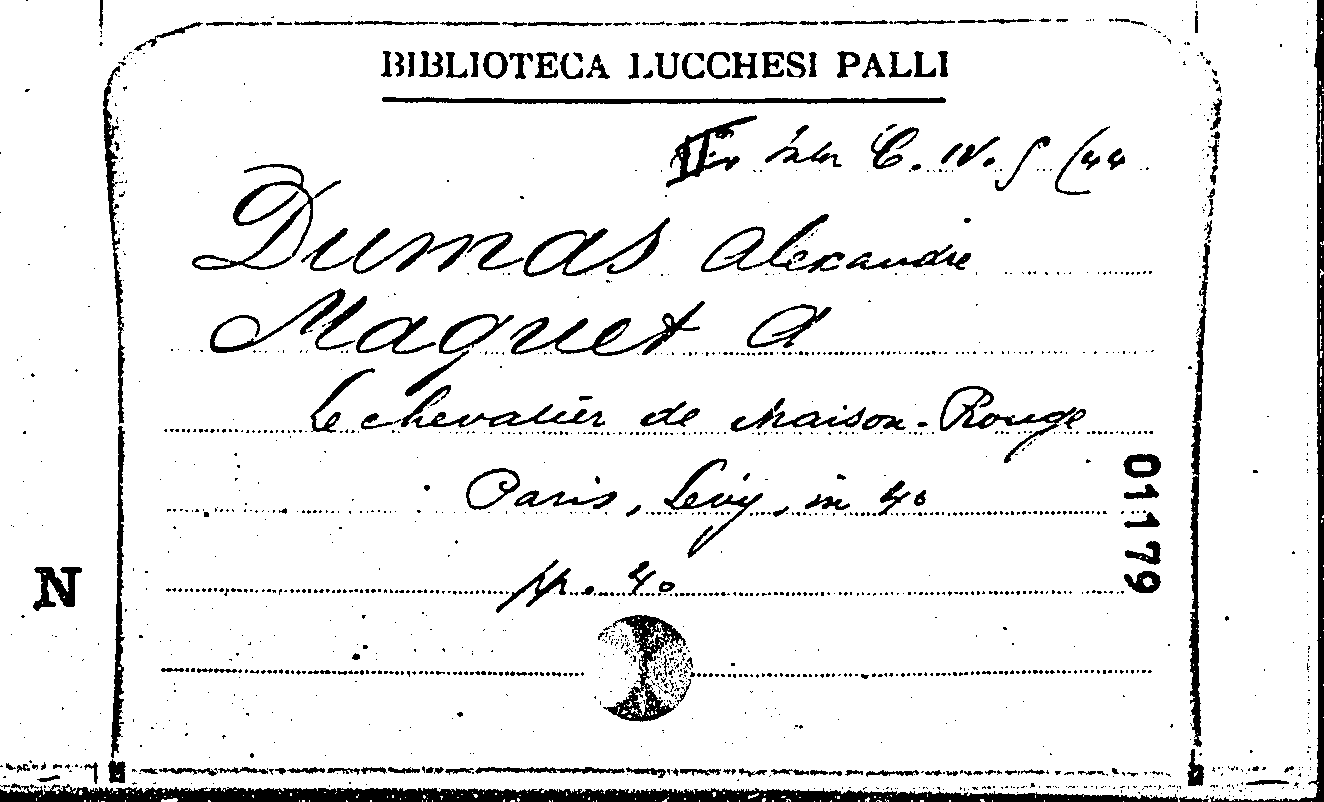 BIBLIOTECA LUCCHESI PALLI
C. IV. 5 (44
Dumas Alexandre
Maquet A
Le chevalier de Maison-Rouge
Paris, Levy, in 4o
pp. 40
01179
N